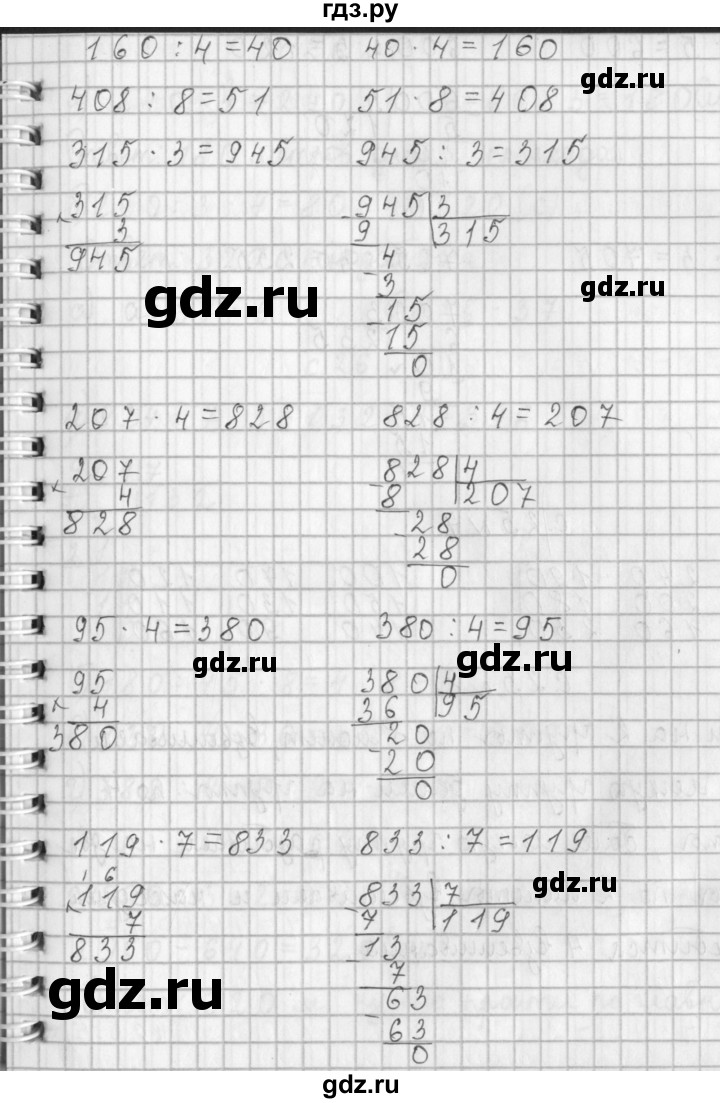 гдз.ру
160 : 4 = 40    40 · 4 = 160
gdz.ru
408 : 8 = 51    51 · 8 = 408
315 · 3 = 945    945 : 3 = 315
× 315
3
945
- 945 | 3
9 | 315
4
- 3
15
- 15
0
gdz.ru
gdz.ru
207 · 4 = 828    828 : 4 = 207
× 207
4
828
- 828 | 4
8 | 207
28
- 28
0
95 · 4 = 380    380 : 4 = 95
gdz.ru
gdz.ru
× 95
4
380
- 380 | 4
36 | 95
20
- 20
0
119 · 7 = 833    833 : 7 = 119
gdz.ru
1 6
× 119
7
833
- 833 | 7
7 | 119
- 13
7
63
- 63
0
gdz.ru
gdz.ru
gdz.ru